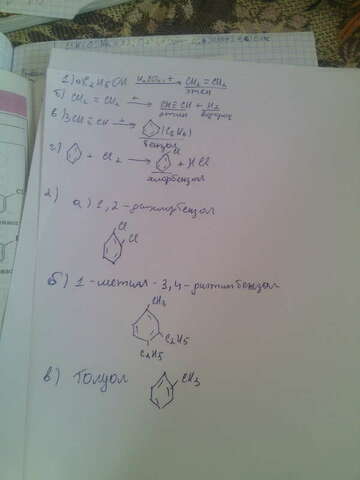 1) а) C₂H₅OH H₂SO₄, t → CH₂=CH₂
этен
б) CH₂=CH₂ t → CH≡CH + H₂
этин водород
в) 3CH≡CH t → (C₆H₆)
бензол
г) + Cl₂ → Cl + HCl
хлорбензол
2)
а) 1,2-дихлорбензол
Cl
Cl
б) 1-метил-3,4-диэтилбензол
CH₃
C₂H₅
C₂H₅
в) Толуол CH₃